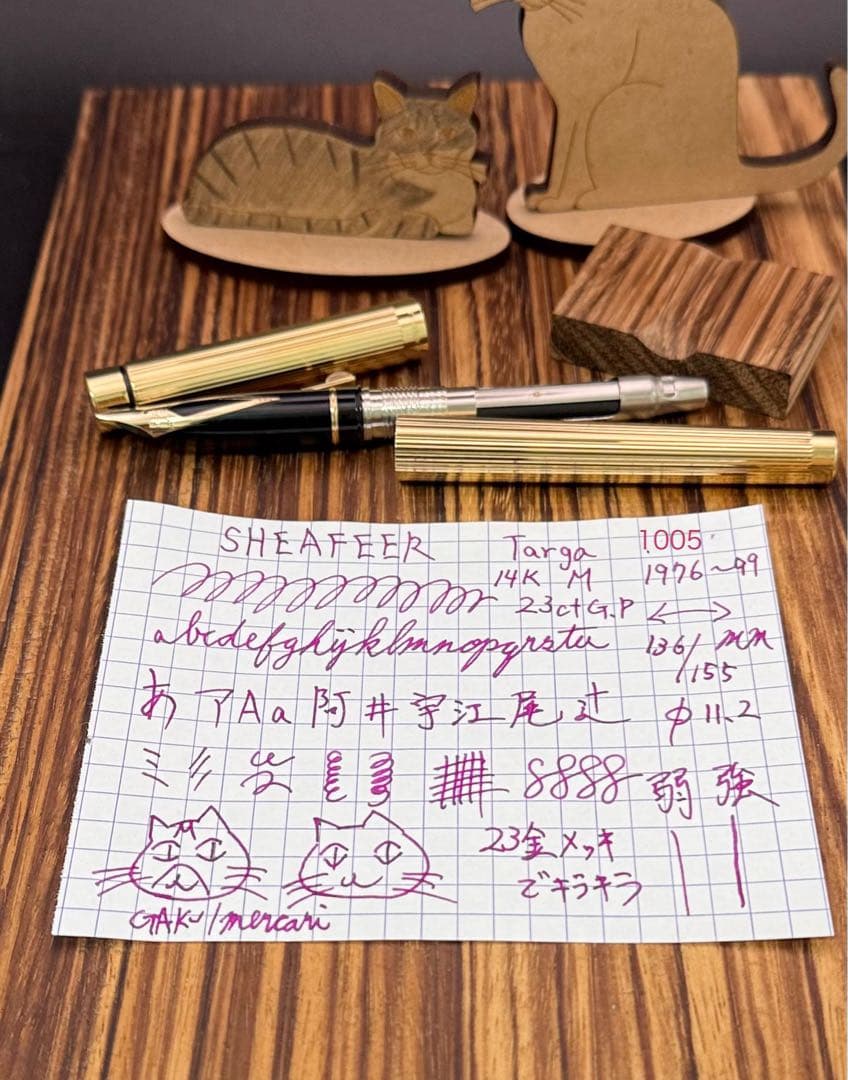 SHEAFEER Targa 1005
14K M 1976~99
23ct G.P
abcdefghijklmnopqrstu 136/155 mm
あ ア A a 阿 井 宇 江 尾 辻 φ 11.2
弱 強
23金メッキ
でキラキラ
GAKU/mercari